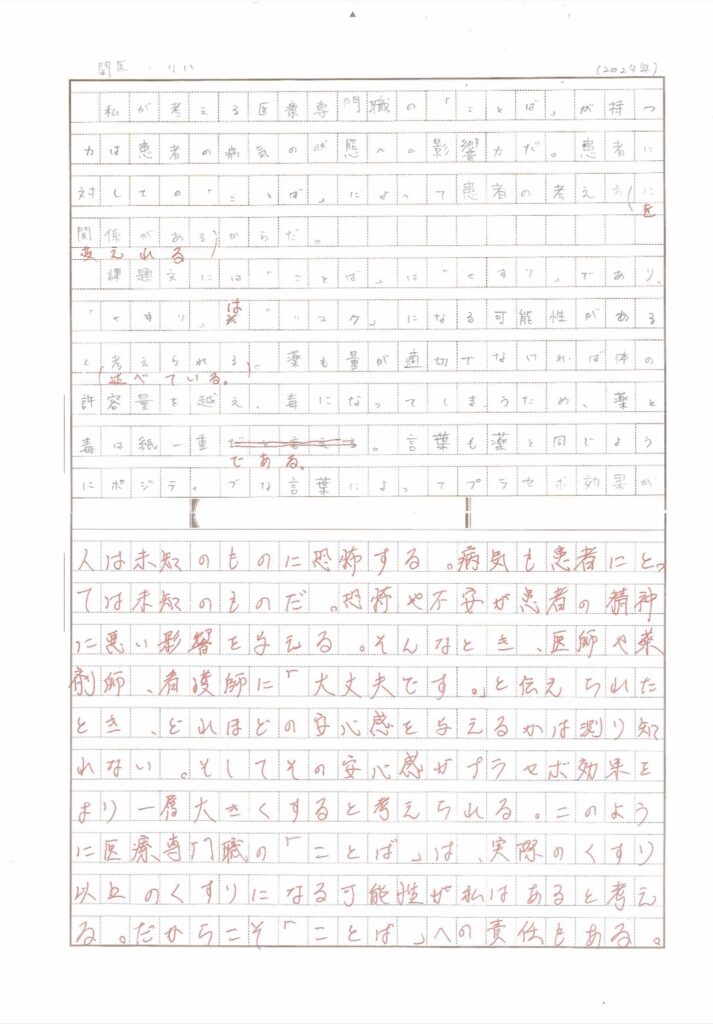 (2024年)
私が考える医療専門職の「ことば」が持つ
力は患者の病気の状態への影響力だ。患者に
対しての「ことば」によって患者の考え方(に
を
関係がある)からだ。
変えれる
課題文には「ことば」は「くすり」であり、
は
「くすり」 「リスク」になる可能性がある
と(考えられる)。薬も量が適切でなければ体の
(述べている。
許容量を越え、毒になってしまうため、薬と
毒は紙一重だと言える。言葉も薬と同じよう
である。
にポジティブな言葉によってプラセボ効果が
人は未知のものに恐怖する。病気も患者にとっ
ては未知のものだ。恐怖や不安が患者の精神
に悪い影響を与える。そんなとき、医師や薬
剤師、看護師に「大丈夫です。」と伝えられた
とき、どれほどの安心感を与えるかは測り知
れない。そしてその安心感がプラセボ効果を
より一層大きくすると考えられる。このよう
に医療専門職の「ことば」は、実際のくすり
以上のくすりになる可能性が私はあると考え
る。だからこそ「ことば」への責任もある。